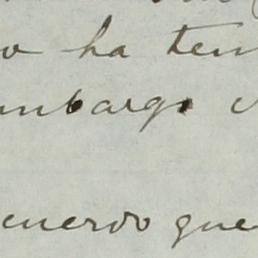 o ha ten
mbargo
cuerdo que